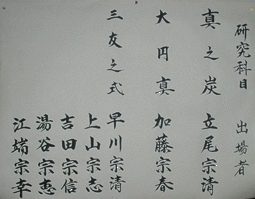 研究科目 出場者
真之炭 立尾宗清
大円真 加藤宗春
三友之式 早川宗清
上山宗志
吉田宗信
湯谷宗恵
江端宗幸